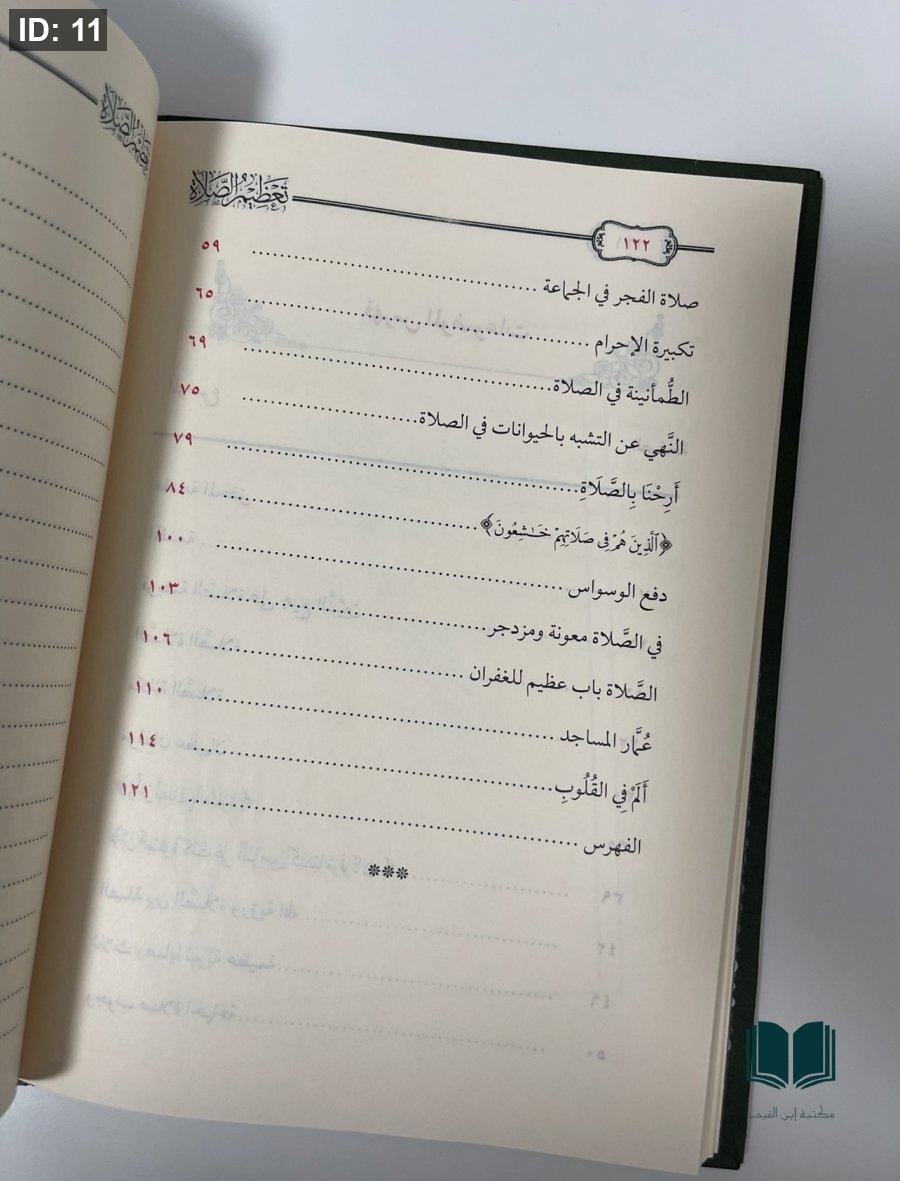 ID: 11
تَعْظِيمُ الصَّلَاةِ
١٢٢
صلاة الفجر في الجماعة ٥٩
تكبيرة الإحرام ٦٥
الطُّمأنينة في الصلاة ٦٩
النَّهي عن التشبه بالحيوانات في الصلاة ٧٥
أَرِحْنَا بِالصَّلَاةِ ٧٩
﴿ٱلَّذِينَ هُمْ فِى صَلَاتِهِمْ خَـٰشِعُونَ﴾ ٨٤
دفع الوسواس ١٠٠
في الصَّلاة معونة ومزدجر ١٠٣
الصَّلاة باب عظيم للغفران ١٠٦
عُمَّار المساجد ١١٠
أَلَمٌ فِي القُلُوبِ ١١٤
الفهرس ١٢١
***
مكتبة إبن القيم